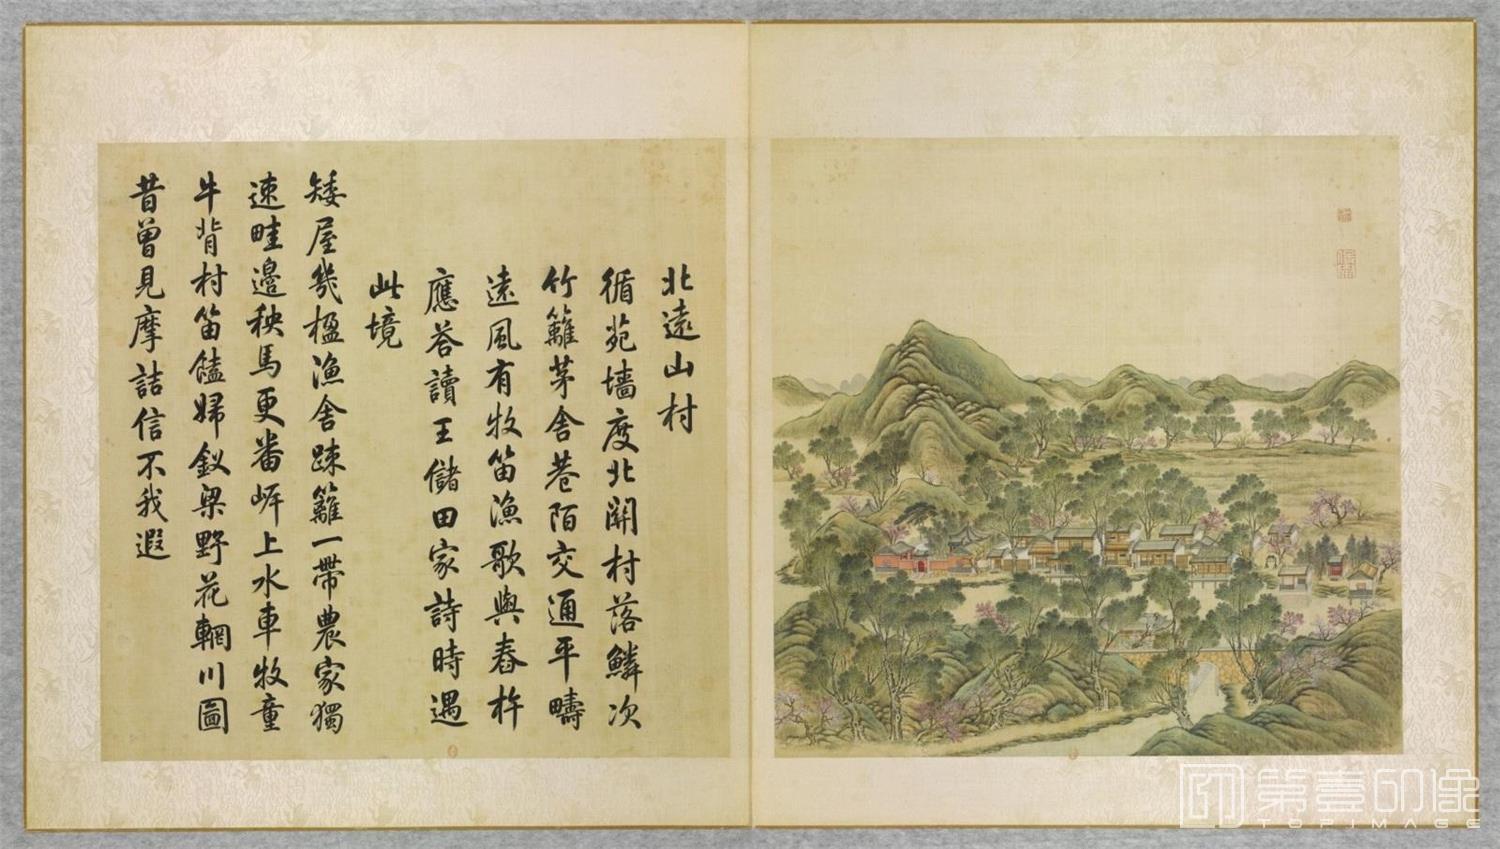 北遠山村
循苑墻度北關村落鱗次
竹籬茅舍巷陌交通平疇
遠風有牧笛漁歌與舂杵
應荅讀王儲田家詩時遇
此境
矮屋幾楹漁舍踈籬一帶農家獨
速畦邊秧馬更番岸上水車牧童
牛背村笛饁婦釵梁野花輞川圖
昔曾見摩詰信不我遐
第壹印像
TOPIMAGE